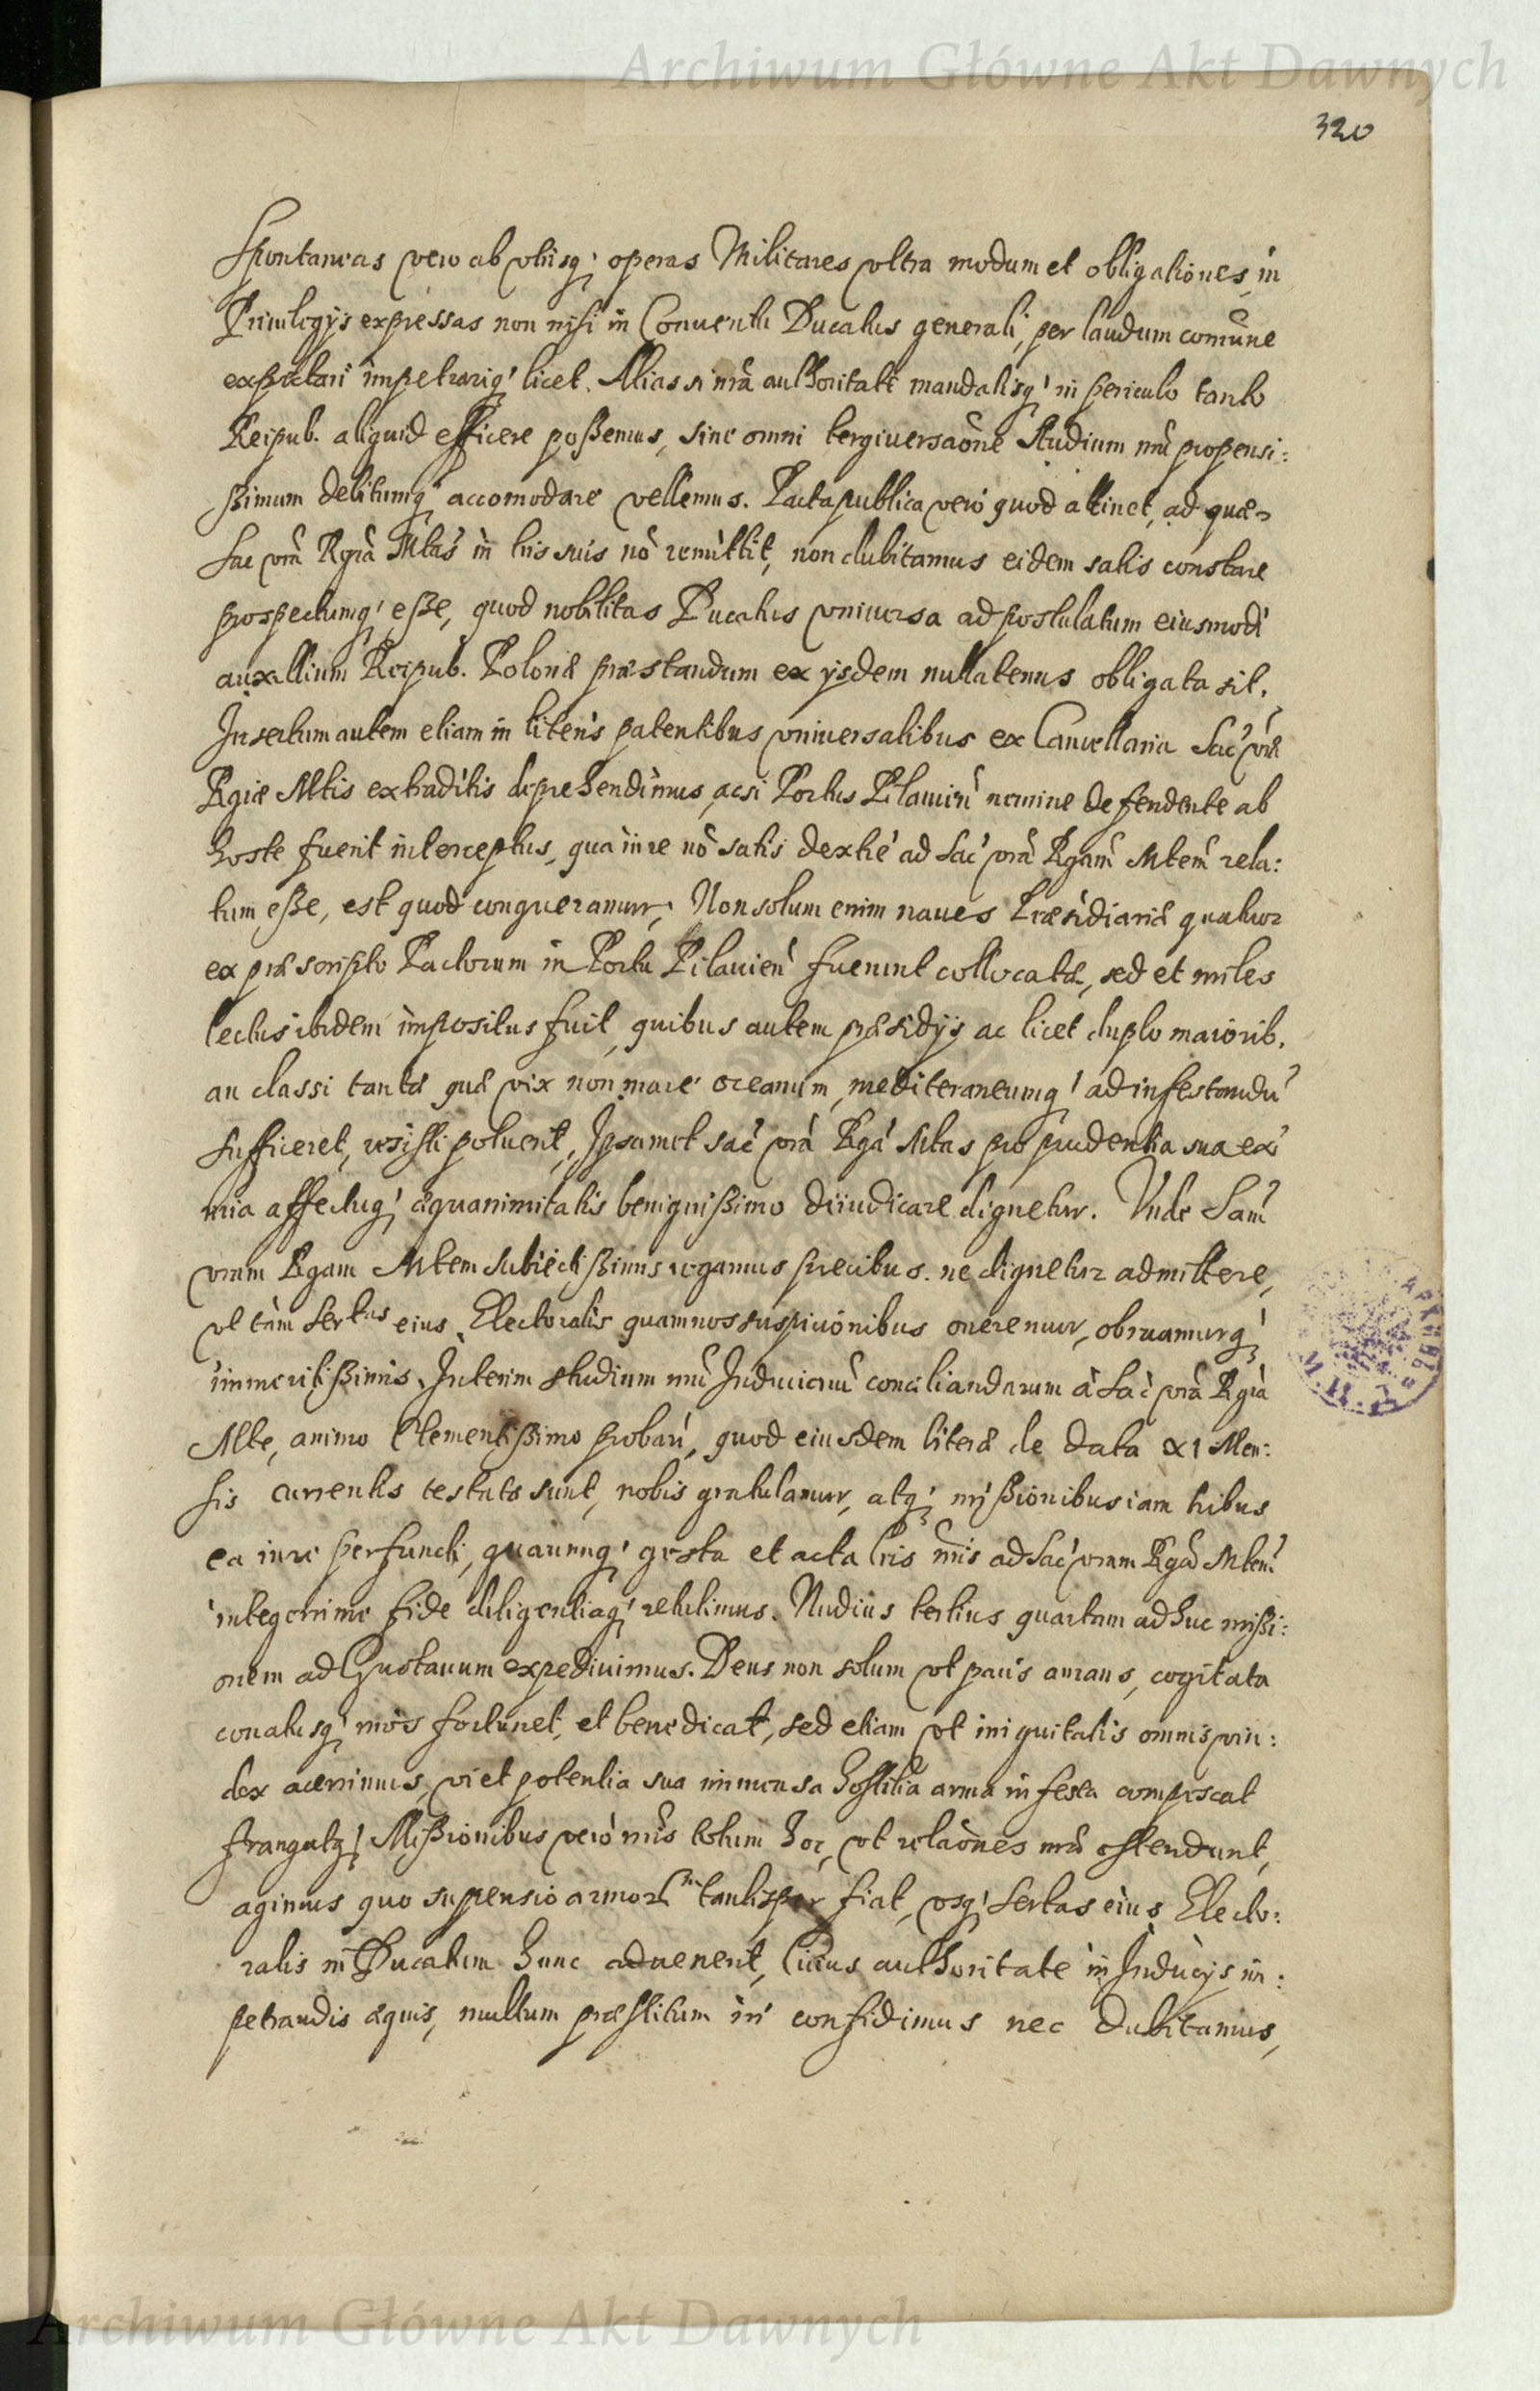 Archiwum Główne Akt Dawnych
320
Spontaneas vero ab vtrisq' operas Militares vltra modum et obligationes in
Priuilegijs expressas non nisi in Conuentu Ducatus generali, per laudum comune
expectari impetrariq' licet. Alias si nrã authoritate mandatisq' in periculo tanto
Reipub. aliquid efficere poßemus, sine omni tergiuersaõne studium nrũ propensi:
ßimum debitumq' accomodare vellemus. Pacta publica vero quod attinet, ad quæ
Sac vrã Rgia Mtas in lris suis nõ remittit, non dubitamus eidem satis constare
prospectumq' eße, quod nobilitas Ducatus vniuersa ad postulatum eiusmodi
auxillium Reipub. Polonæ præstandum ex ijsdem nullatenus obligata sit.
Insertum autem etiam in literis patentibus vniuersalibus ex Cancellaria Sac vræ
Rgiæ Mtis extraditis deprehendimus, acsi Portus Pilauien nemine defendente ab
hoste fuerit interceptus, qua in re nõ satis dextre ad Sac vrã Rgam Mtem rela:
tum eße, est quod conqueramur; Non solum enim naues Præsidiariæ quatuor
ex præscripto Pactorum in Portu Pilauien fuerunt collocatæ, sed et miles
lectus ibidem impositus fuit, quibus autem præsidijs ac licet duplo maiorib.
an classi tantæ quæ vix non mare oceanum, mediteraneumq' ad infestandũ
sufficeret, resisti potuerit, Ipsamet sac vrã Rga Mtas pro prudentia sua exi
mia affectuq' æquanimitatis benignißimo diiudicare dignetur. Vnde Sam
vram Rgam Mtem subiectißimis rogamus precibus. ne dignetur admittere,
vt tàm Sertus eius Electoralis quam nos suspicionibus oneremur, obruamurq'
immeritißimis. Interim studium nrũ Induciarũ conciliandarum à Sac vrã Rgia
Mte, animo Clementißimo probari, quod eiusdem literæ de data XI Men:
sis currentis testatæ sunt, nobis gratulamur, atq' mißionibus iam tribus
ea in re perfuncti, quarumq' gesta et acta lris nris ad Sac vram Rgã Mtem
integerrime fide diligentiaq' retulimus. Nudius tertius quartam adhuc mißi:
onem ad Gustauum expediuimus. Deus non solum vt pacis amans, cogitata
conatusq' nros fortunet, et benedicat, sed etiam vt iniquitatis omnis vin:
dex acerrimus, vi et potentia sua immensa hostilia arma infesta compescat
frangatq' Mißionibus verò nris totum hoc, vt relaõnes nræ ostendunt,
agimus quo suspensio armor tantisper fiat, vsq' Sertas eius Electo:
ralis in Ducatum hunc aduenerit, Cuius authoritate in Inducijs im:
petrandis æquis, multum præstitum iri confidimus nec dubitamus,
Archiwum Główne Akt Dawnych